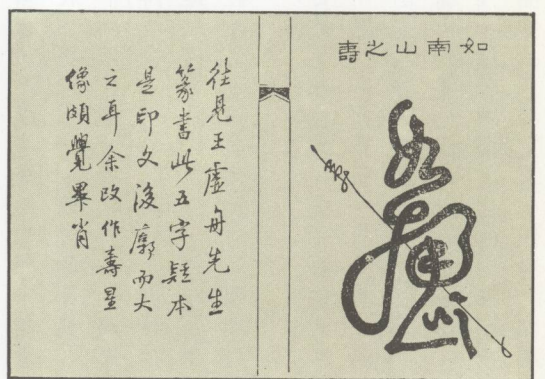 如南山之壽
往見王虛舟先生
篆書此五字疑本
是印文後廓而大
之耳余改作壽星
像頗覺畢肖